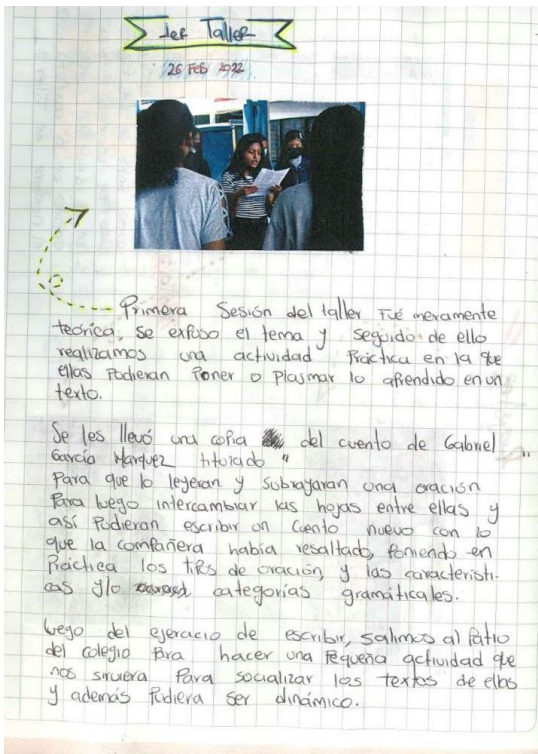 1er Taller
26 Feb 2022
Primera Sesión del taller Fué meramente
teorica, se expuso el tema y seguido de ello
realizamos una actividad Práctica en la que
ellas Pudieran Poner o Plasmar lo aprendido en un
texto.
Se les llevó una copia del cuento de Gabriel
García Marquez titulado " "
Para que lo leyeran y subrayaran una oración
Para luego intercambiar las hojas entre ellas y
así Pudieran escribir un cuento nuevo con lo
que la compañera había resaltado, poniendo en
Práctica los tipos de oración, y las caracteristi-
cas y/o categorías gramaticales.
Luego del ejercicio de escribir, salimos al Patio
del colegio Para hacer una Pequeña actividad que
nos sirviera Para socializar los textos de ellas
y además Pudiera ser dinámico.